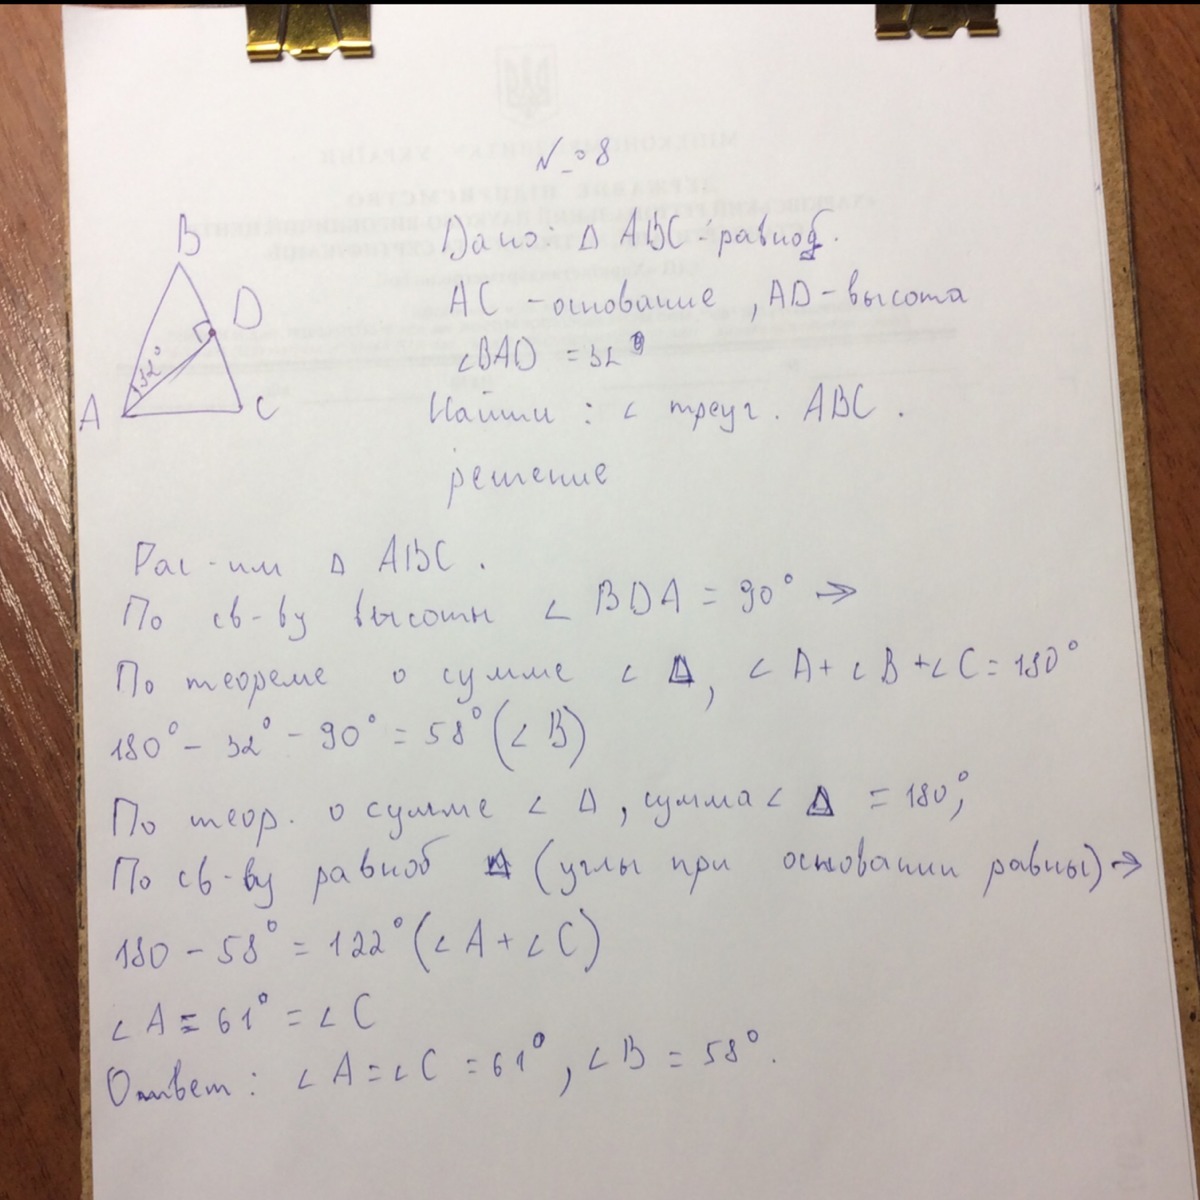 № 8
B
D
32°
A
C
Дано: Δ ABC - равноб.
AC - основание, AD - высота
∠BAD = 32°
Найти: ∠ треуг. ABC.
решение
Рас-им Δ ABC.
По св-ву высоты ∠ BDA = 90° ⇒
По теореме о сумме ∠ Δ, ∠ A + ∠ B + ∠ C = 180°
180° - 32° - 90° = 58° (∠ B)
По теор. о сумме ∠ Δ, сумма ∠ Δ = 180°;
По св-ву равноб Δ (углы при основании равны) →
180 - 58° = 122° (∠ A + ∠ C)
∠ A = 61° = ∠ C
Ответ: ∠ A = ∠ C = 61°, ∠ B = 58°.